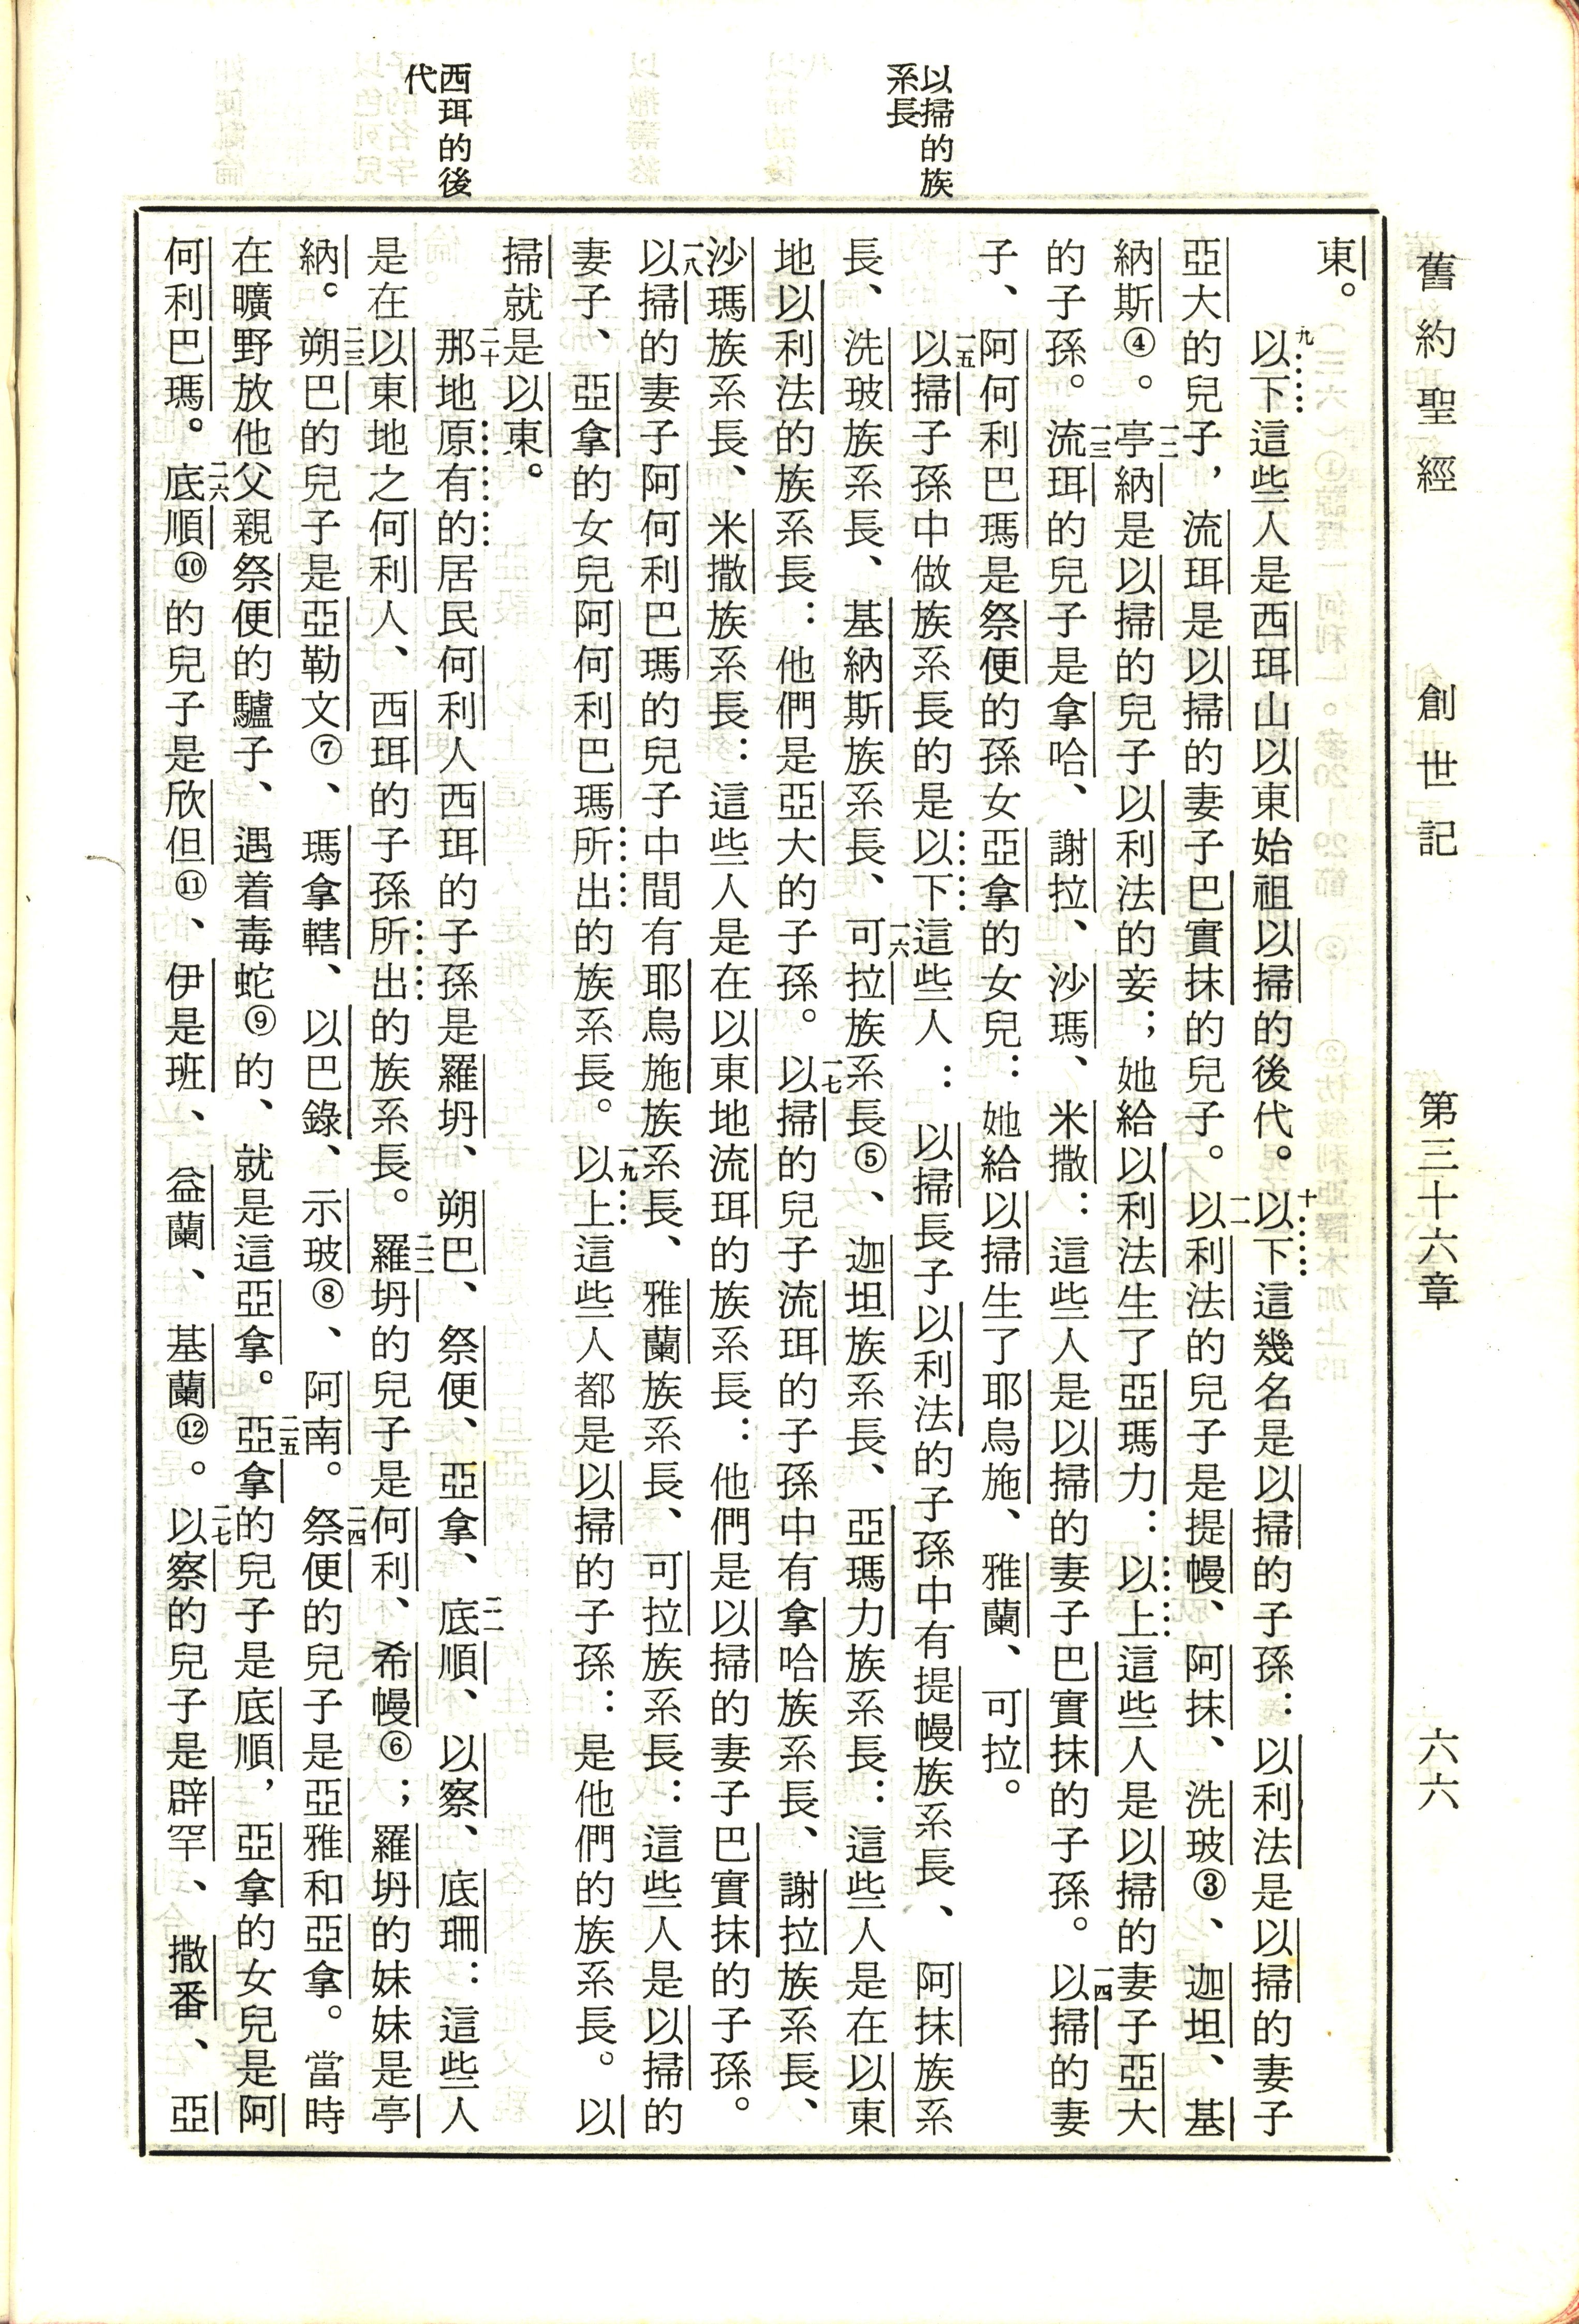 舊約聖經　創世記　第三十六章　六六
以掃的族
系長
西珥的後
代
東。
九以下這些人是西珥山以東始祖以掃的後代。十以下這幾名是以掃的子孫：以利法是以掃的妻子
亞大的兒子，流珥是以掃的妻子巴實抹的兒子。一一以利法的兒子是提幔、阿抹、洗玻③、迦坦、基
納斯④。一二亭納是以掃的兒子以利法的妾；她給以利法生了亞瑪力：以上這些人是以掃的妻子亞大
的子孫。一三流珥的兒子是拿哈、謝拉、沙瑪、米撒：這些人是以掃的妻子巴實抹的子孫。一四以掃的妻
子、阿何利巴瑪是祭便的孫女亞拿的女兒：她給以掃生了耶烏施、雅蘭、可拉。
一五以掃子孫中做族系長的是以下這些人：以掃長子以利法的子孫中有提幔族系長、阿抹族系
長、洗玻族系長、基納斯族系長、一六可拉族系長⑤、迦坦族系長、亞瑪力族系長：這些人是在以東
地以利法的族系長：他們是亞大的子孫。一七以掃的兒子流珥的子孫中有拿哈族系長、謝拉族系長、
沙瑪族系長、米撒族系長：這些人是在以東地流珥的族系長：他們是以掃的妻子巴實抹的子孫。
一八以掃的妻子阿何利巴瑪的兒子中間有耶烏施族系長、雅蘭族系長、可拉族系長：這些人是以掃的
妻子、亞拿的女兒阿何利巴瑪所出的族系長。一九以上這些人都是以掃的子孫：是他們的族系長。以
掃就是以東。
二十那地原有的居民何利人西珥的子孫是羅坍、朔巴、祭便、亞拿、二一底順、以察、底珊：這些人
是在以東地之何利人、西珥的子孫所出的族系長。二二羅坍的兒子是何利、希幔⑥；羅坍的妹妹是亭
納。二三朔巴的兒子是亞勒文⑦、瑪拿轄、以巴錄、示玻⑧、阿南。二四祭便的兒子是亞雅和亞拿。當時
在曠野放他父親祭便的驢子、遇着毒蛇⑨的、就是這亞拿。二五亞拿的兒子是底順，亞拿的女兒是阿
何利巴瑪。二六底順⑩的兒子是欣但⑪、伊是班、益蘭、基蘭⑫。二七以察的兒子是辟罕、撒番、亞